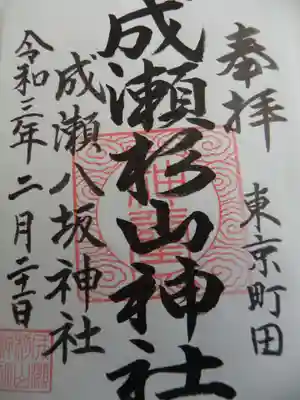 奉拝
東京町田
成瀬杉山神社
成瀬八坂神社
令和三年二月二十一日